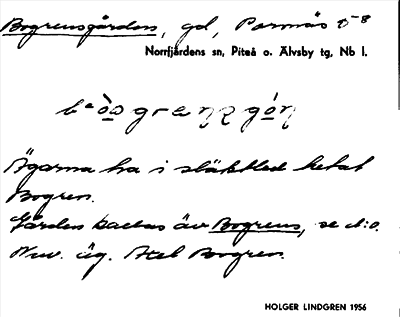 Bogrensgården, gd, Porsnäs 5⁸
Norrfjärdens sn, Piteå o. Älvsby tg, Nb l.
Ägarna ha i släktled hetat
Bogren.
Gården kallas äv Bogrens, se d:o.
Nuv. äg. Axel Bogren.
HOLGER LINDGREN 1956